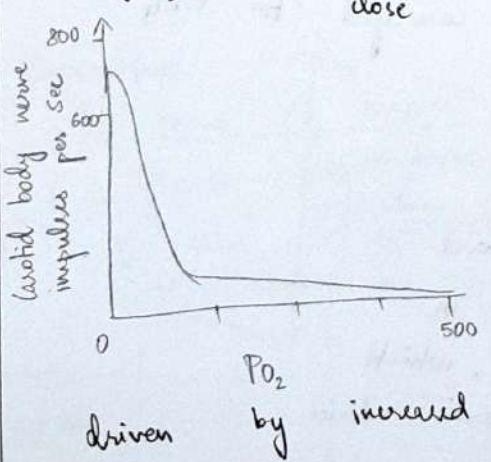 close
800
600
Carotid body nerve
impulses per sec
0
500
PO₂
driven by increased